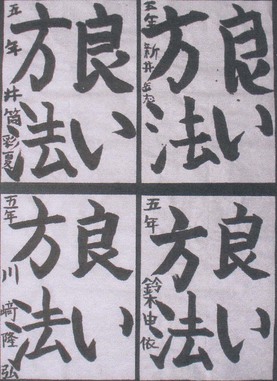 良い
方法
五年 新井
良い
方法
五年 井筒彩夏
良い
方法
五年 鈴木由依
良い
方法
五年 川崎隆弘